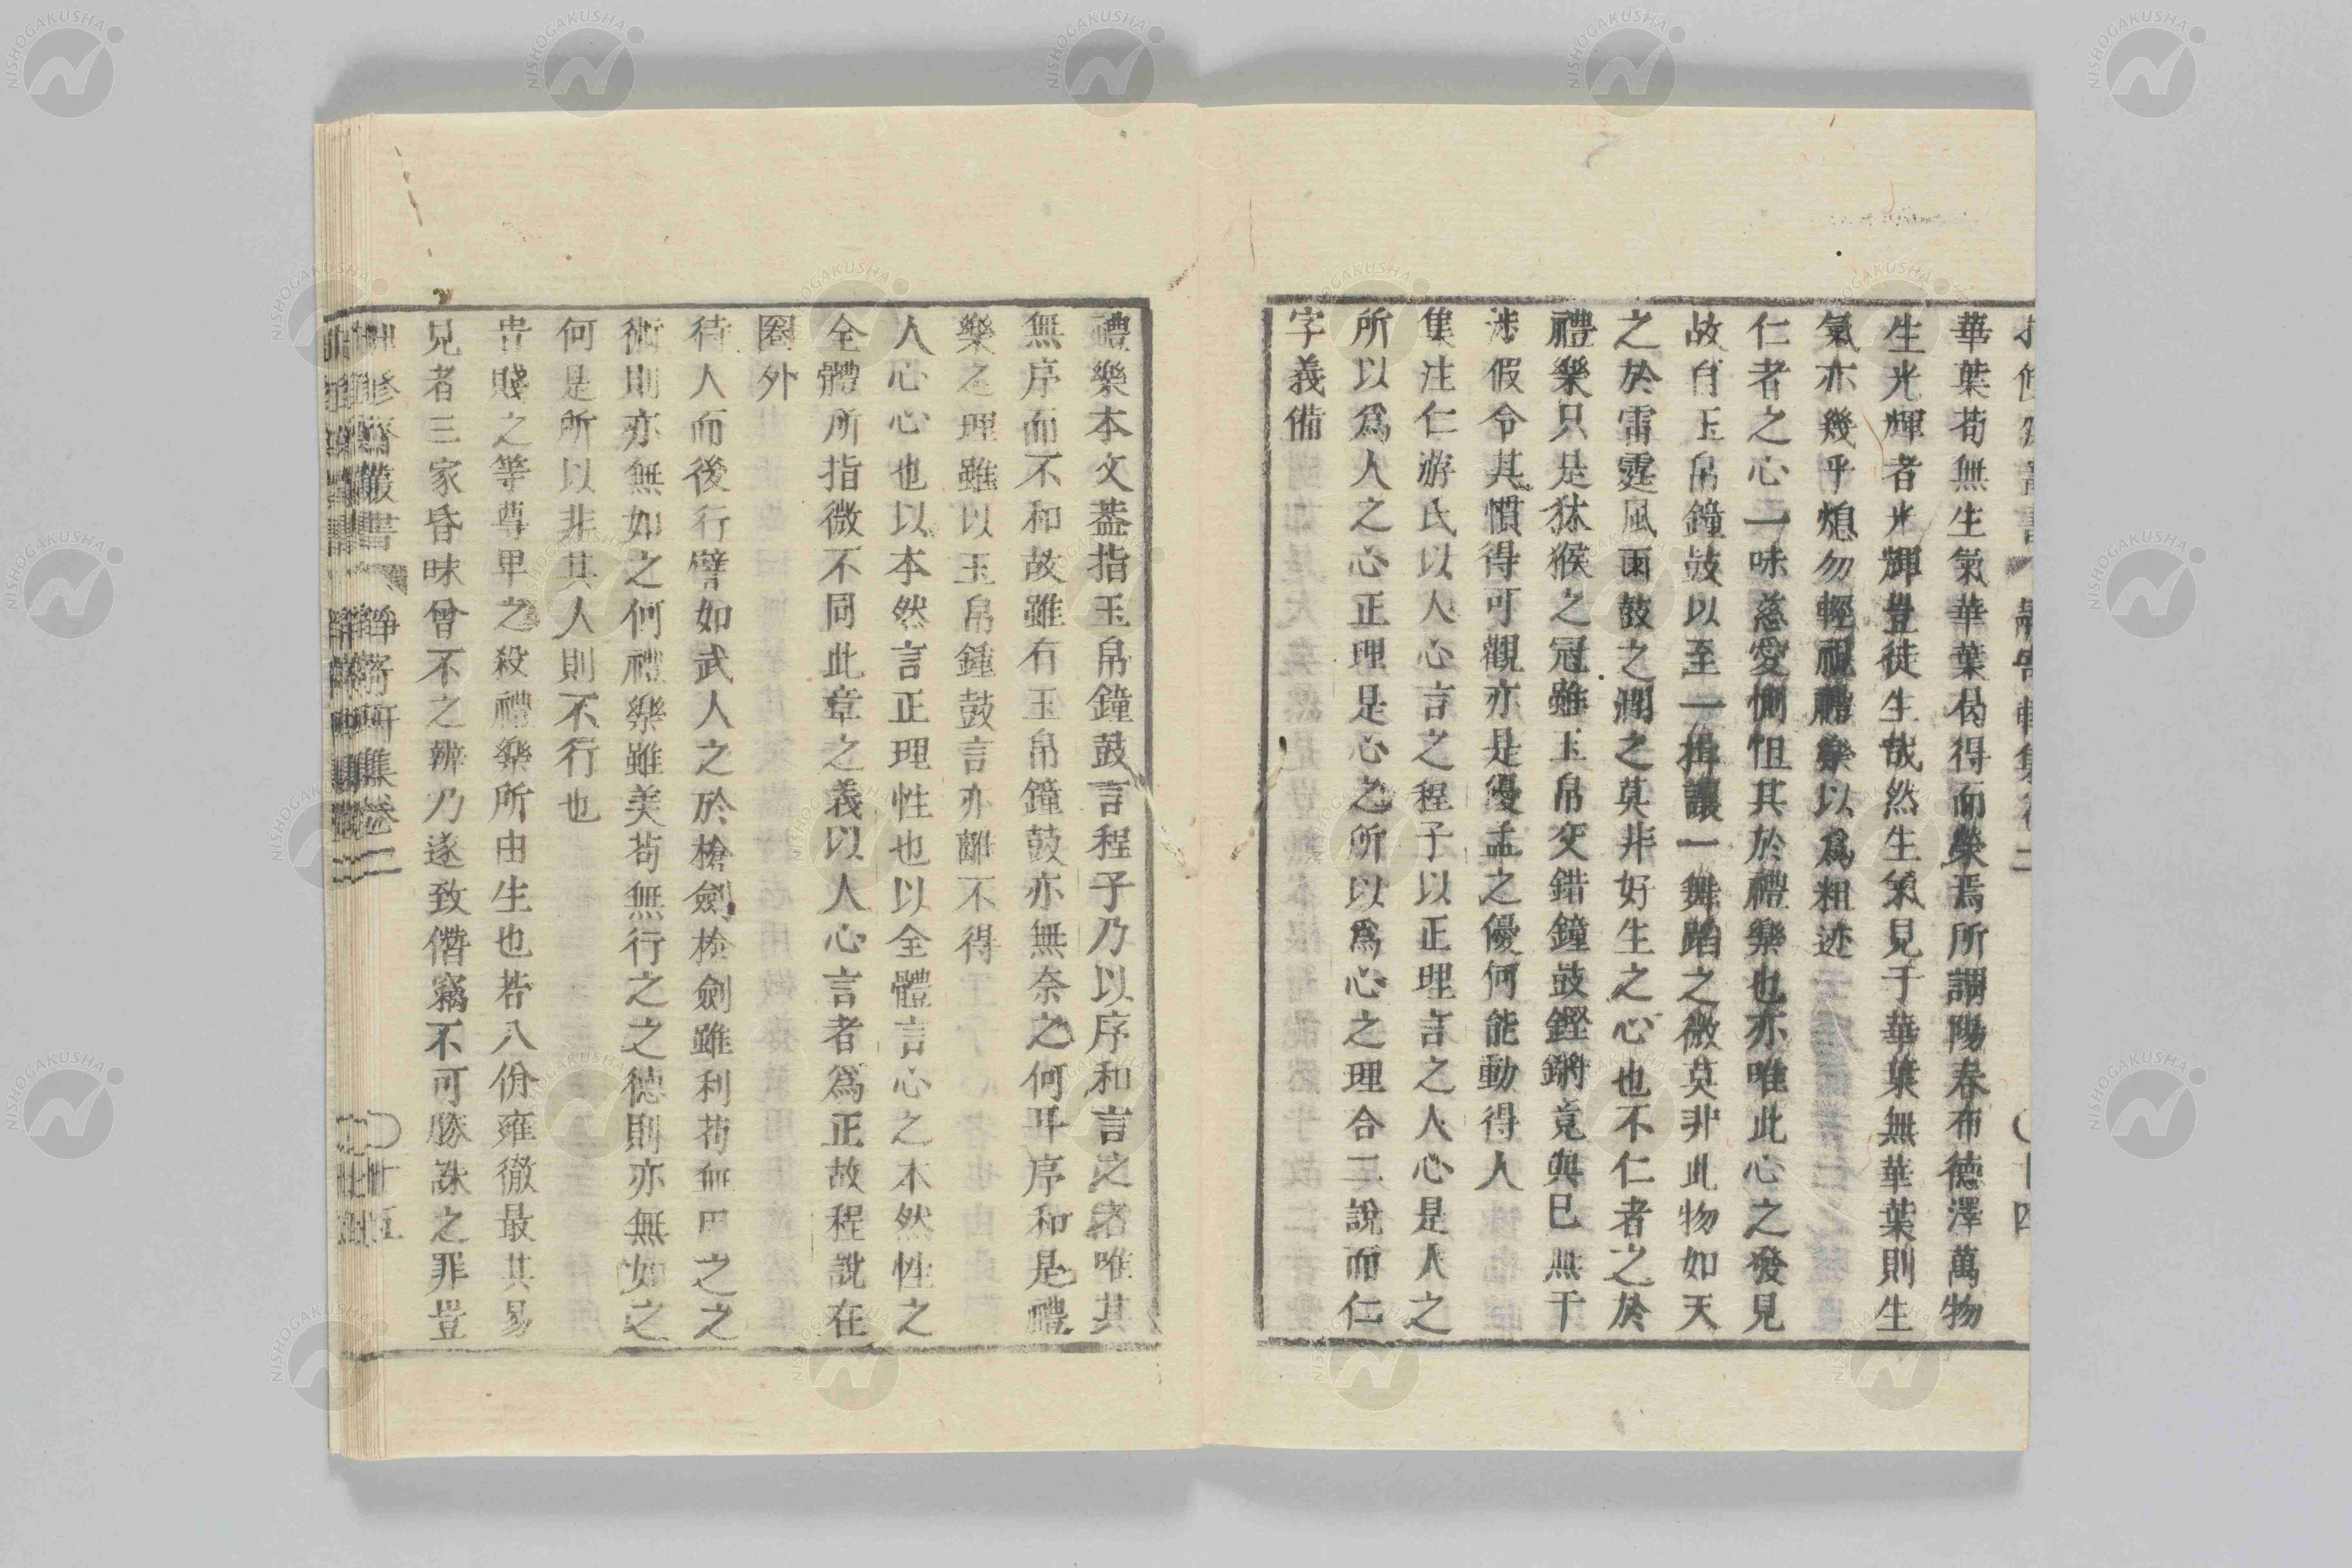 華葉苟無生氣華葉曷得而榮焉所謂陽春布德澤萬物
生光輝者光輝豈徒生哉然生氣見于華葉無華葉則生
氣亦幾乎熄勿輕視禮樂以爲粗迹
仁者之心一味慈愛惻怛其於禮樂也亦唯此心之發見
故自玉帛鐘鼓以至一揖讓一舞蹈之微莫非此物如天
之於雷霆風雨鼓之潤之莫非好生之心也不仁者之於
禮樂只是猴之冠雖玉帛交錯鐘鼓鏗鏘竟與己無干
涉假令其慣得可觀亦是優孟之優何能動得人
集注仁游氏以人心言之程子以正理言之人心是人之
所以爲人之心正理是心之所以爲心之理合二說而仁
字義備
禮樂本文蓋指玉帛鐘鼓言程子乃以序和言之者唯其
無序而不和故雖有玉帛鐘鼓亦無奈之何耳序和是禮
樂之理雖以玉帛鍾鼓言亦離不得
人心心也以本然言正理性也以全體言心之本然性之
全體所指微不同此章之義以人心言者爲正故程說在
圈外
待人而後行譬如武人之於槍劍槍劍雖利苟無用之之
術則亦無如之何禮樂雖美苟無行之之德則亦無如之
何是所以非其人則不行也
貴賤之等尊卑之殺禮樂所由生也若八佾雍徹最其易
見者三家昏昧曾不之辨乃遂致僭竊不可勝誅之罪豈
修 叢書 靜寄軒集卷二 十五
NISHOGAKUSHA